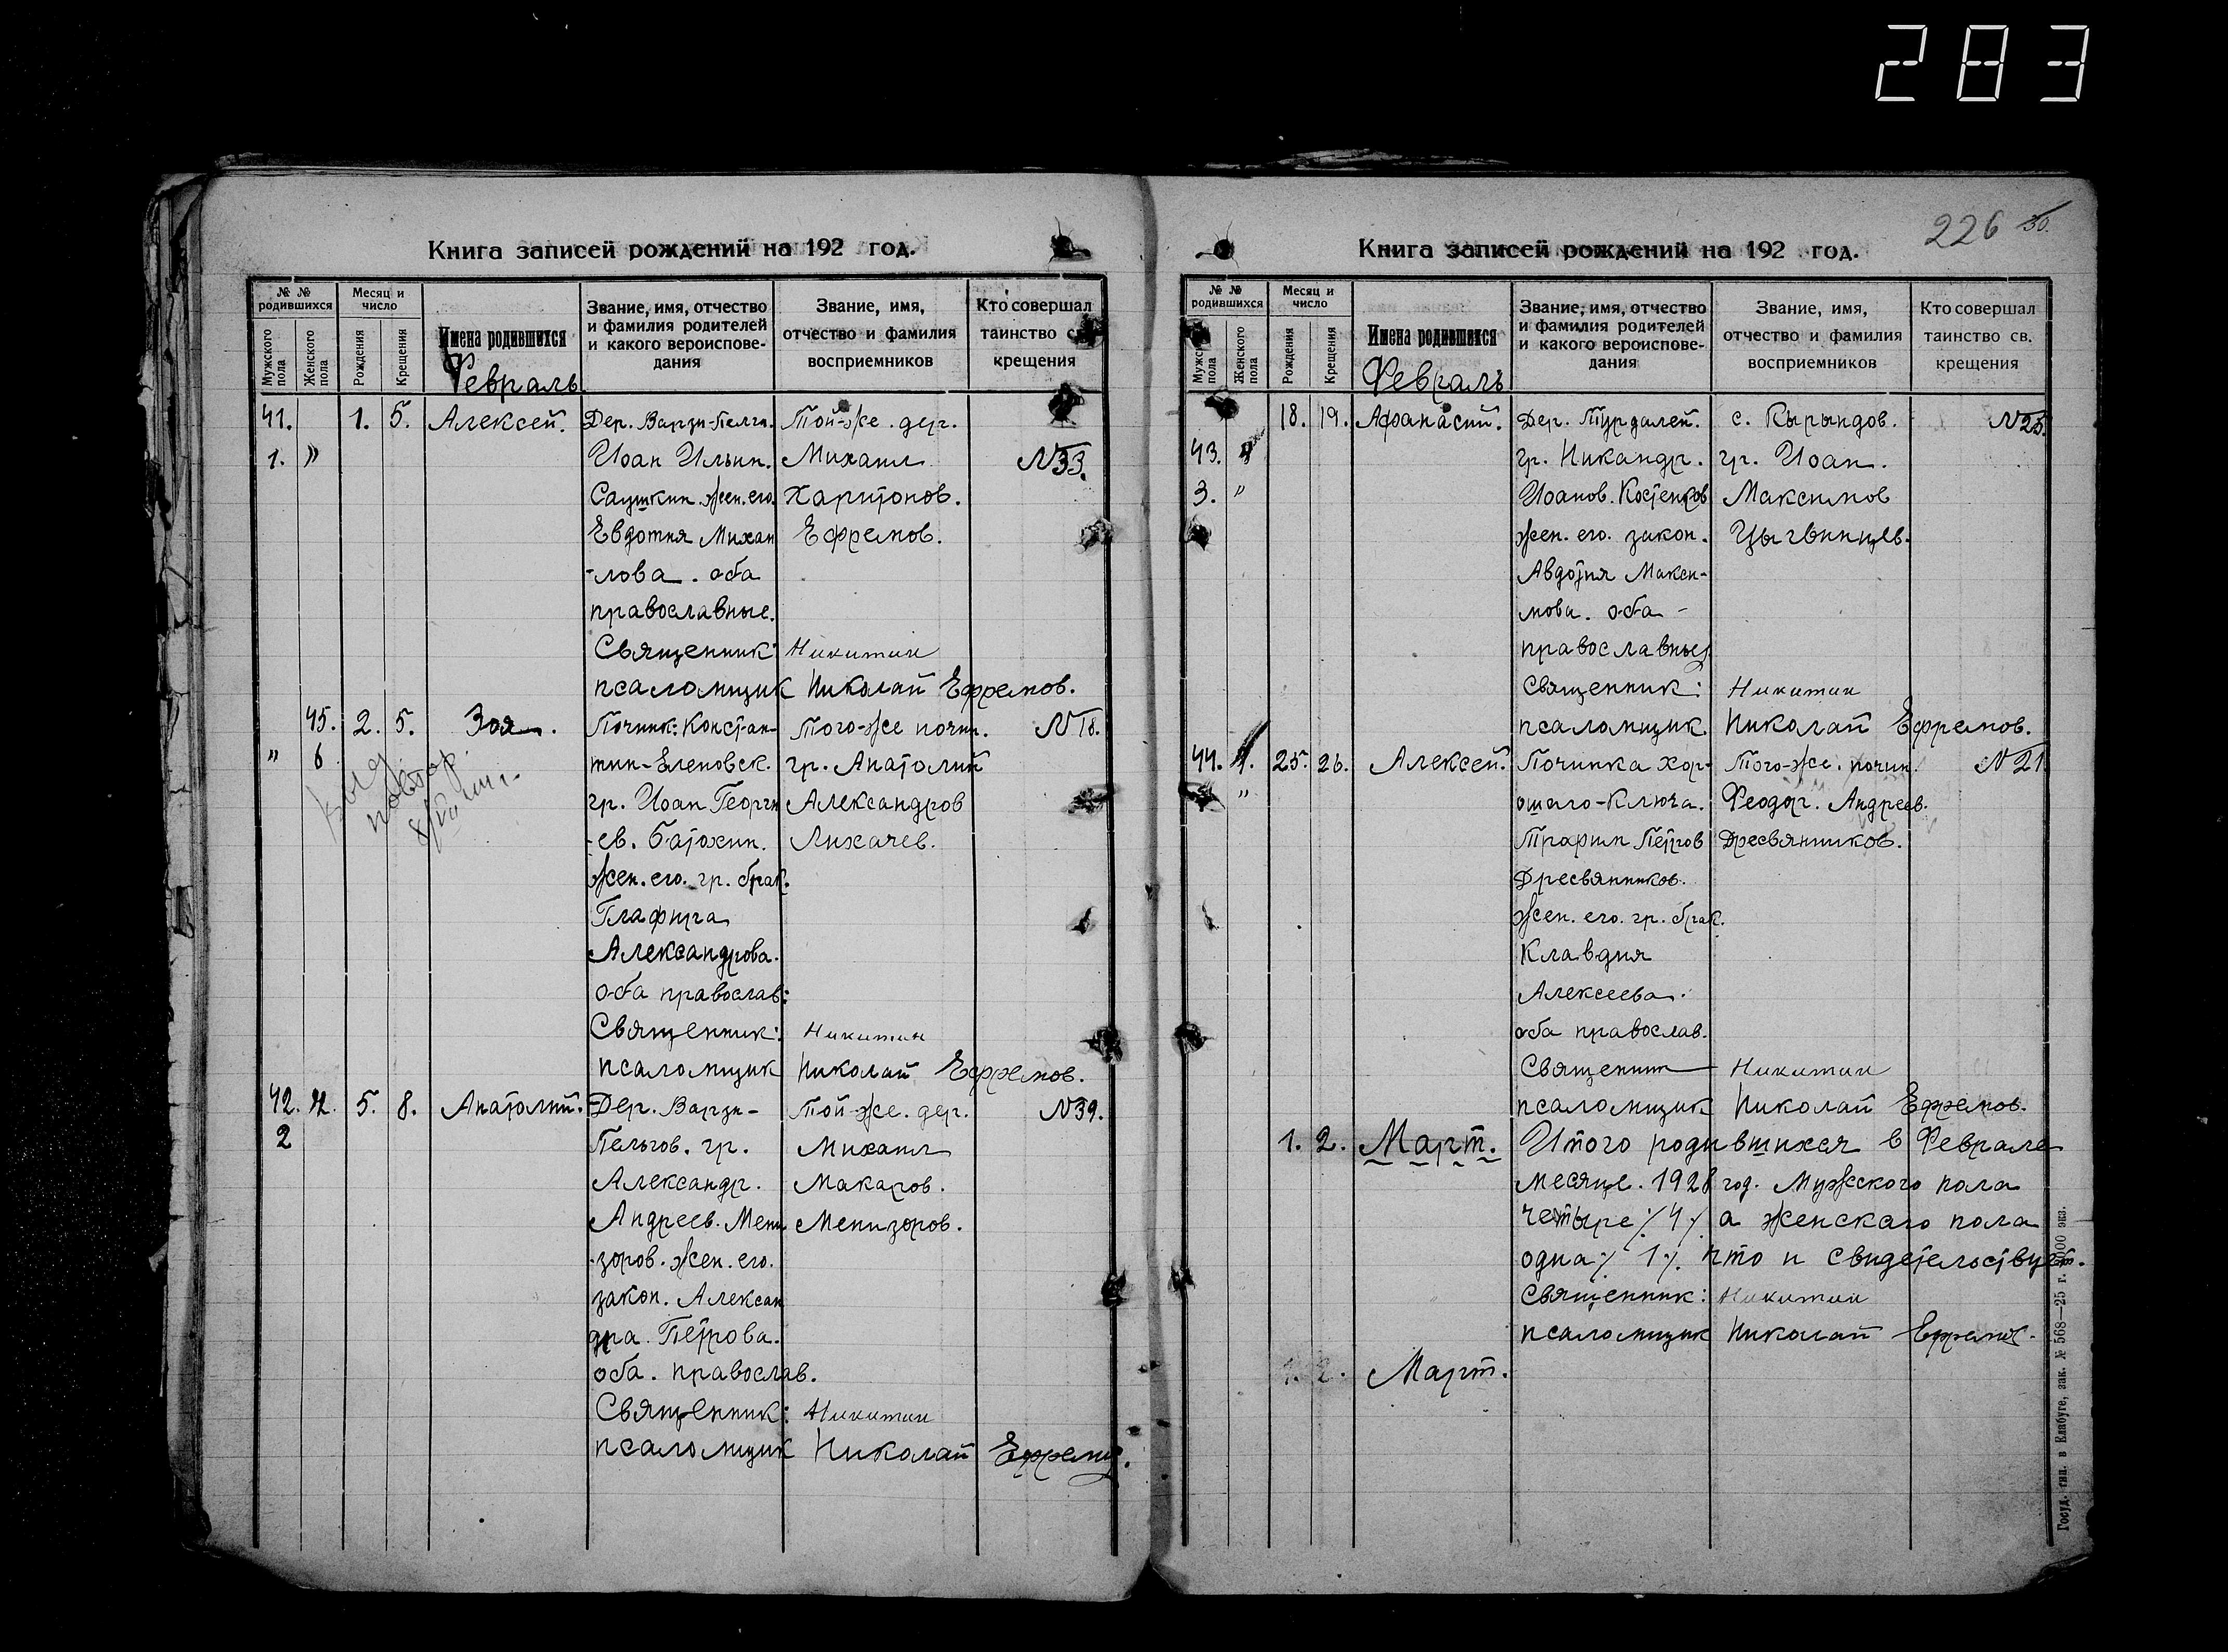 283
Книга записей рождений на 192 год.
№ № родившихся
Месяц и число
Мужского пола
Женского пола
Рождения
Крещения
Имена родившихся
Февраль
Звание, имя, отчество и фамилия родителей и какого вероисповедания
Звание, имя, отчество и фамилия восприемников
Кто совершал таинство св. крещения
41. 1. 5. Алексей. Дер. Варзи-Пелги. Той-же. дер.
1. » Иоан Ильин. Михаил N33.
Саушкин. жен. его. Харитонов.
Евдотия Михаи Ефремов.
-лова. оба
православные.
Священник: Никитин
псаломщик Николай Ефремов.
45. 2. 5. Зоя. Починк: Констан- Того-же почин. N18.
" 6 тин-Еленовск. гр. Анатолий
гр. Иоан Георги Александров
-ев. Батохин. Лихачев.
жен. его. гр. брак.
Глафира
Александрова.
оба православ:
Священник: Никитин
псаломщик Николай Ефремов.
42. 5. 8. Анатолий. Дер. Варзи- Той-же. дер. N39.
2 Пельгов. гр. Михаил
Александр. Макаров.
Андреев. Мени Менизоров.
-зоров. жен. его.
закон. Алексан
дра. Петрова.
оба. православ.
Священник: Никитин
псаломщик Николай Ефремов.
226 30.
Книга записей рождений на 192 год.
№ № родившихся
Месяц и число
Мужск пола
Женского пола
Рождения
Крещения
Имена родившихся
Февраль
Звание, имя, отчество и фамилия родителей и какого вероисповедания
Звание, имя, отчество и фамилия восприемников
Кто совершал таинство св. крещения
18. 19. Афанасий. Дер. Турдалей. с. Кырындов. N25.
43. гр. Никандр. гр. Иоан.
3. " Иоанов. Костенков Максимов
жен. его. закон. Цыгвинцев.
Авдотия Макси-
мова. оба -
православные
Священник: Никитин
псаломщик Николай Ефремов.
44. 25. 26. Алексей. Починка Хор- Того-же. почин. N21.
" ошаго-Ключа. Феодор. Андреев.
Трафим Петров Дресвянников.
Дресвянников.
жен. его. гр. брак.
Клавдия
Алексеева.
оба православ.
Священник Никитин
псаломщик Николай Ефремов.
1. 2. Март. Итого родившихся в Феврале
месяце. 1928 год. Мужского пола
четыре ٪ 4 ٪ а женскаго пола
одна ٪ 1 ٪. что и свидетельствует.
Священник: Никитин
псаломщик Николай Ефремов.
1. 2. Март.
Госуд. тип. в Елабуге, зак. № 568—25 г.